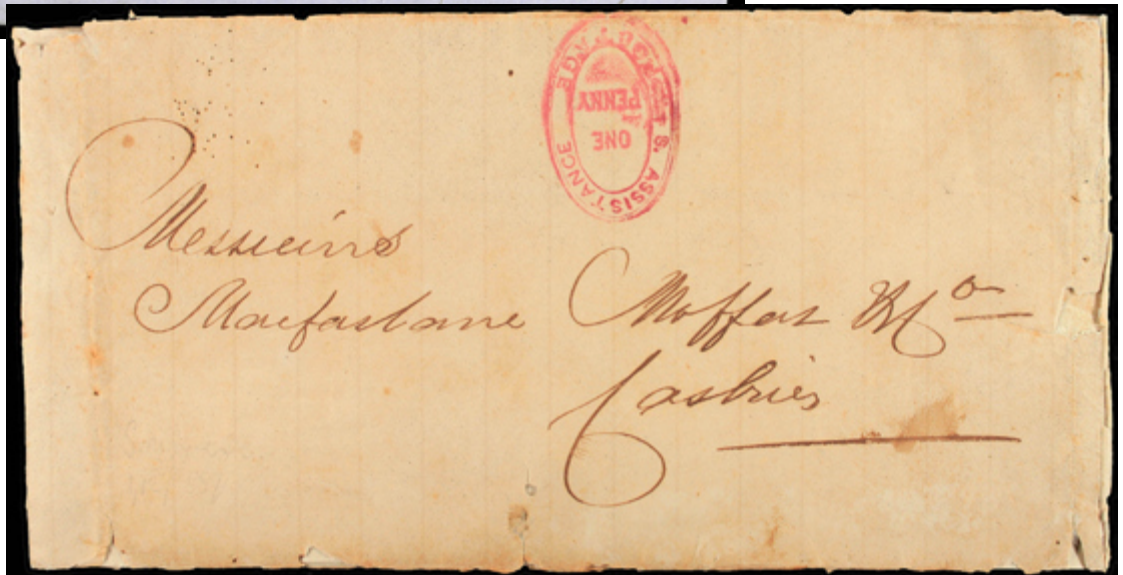 S. ASSISTANCE
POSTAGE
ONE
PENNY
Messieurs
Macfarlane Moffat & Co
Castries